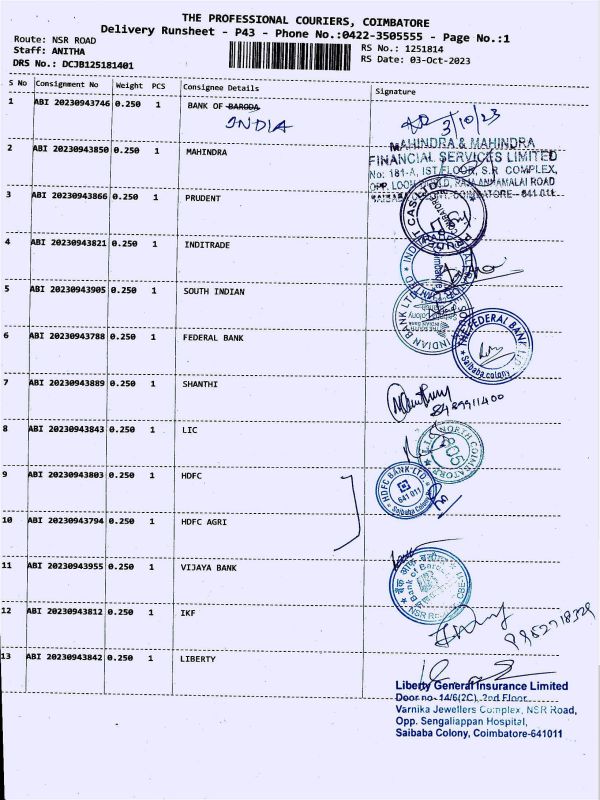 THE PROFESSIONAL COURIERS, COIMBATORE
Delivery Runsheet - P43 - Phone No.:0422-3505555 - Page No.:1
Route: NSR ROAD
Staff: ANITHA
DRS No.: DCJB125181401
RS No.: 1251814
RS Date: 03-Oct-2023
S No Consignment No Weight PCS Consignee Details Signature
1 ABI 20230943746 0.250 1 BANK OF BARODA
INDIA
3/10/23
2 ABI 20230943850 0.250 1 MAHINDRA
MAHINDRA & MAHINDRA
FINANCIAL SERVICES LIMITED
No: 181-A, IST FLOOR, S.R. COMPLEX,
RAJA ANNAMALAI ROAD
COIMBATORE- 641 011.
3 ABI 20230943866 0.250 1 PRUDENT
4 ABI 20230943821 0.250 1 INDITRADE
5 ABI 20230943905 0.250 1 SOUTH INDIAN
INDIAN BANK LTD
6 ABI 20230943788 0.250 1 FEDERAL BANK
THE FEDERAL BANK LTD
Saibaba colony
7 ABI 20230943889 0.250 1 SHANTHI
8489911400
8 ABI 20230943843 0.250 1 LIC
NORTH COIMBATORE
9 ABI 20230943803 0.250 1 HDFC
HDFC BANK LTD
641 011
Saibaba Colony
10 ABI 20230943794 0.250 1 HDFC AGRI
11 ABI 20230943955 0.250 1 VIJAYA BANK
Bank of Baroda
12 ABI 20230943812 0.250 1 IKF
9952718329
13 ABI 20230943842 0.250 1 LIBERTY
Liberty General Insurance Limited
Door no. 14/6(2C), 2nd Floor,
Varnika Jewellers Complex, NSR Road,
Opp. Sengaliappan Hospital,
Saibaba Colony, Coimbatore-641011